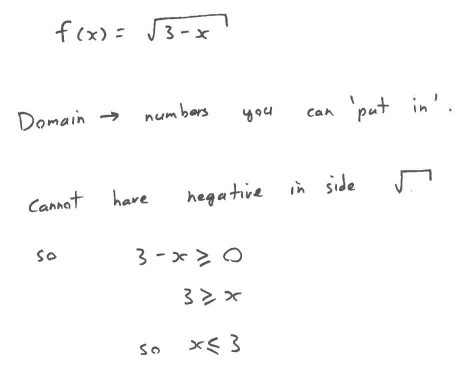 f(x) = √3-x
Domain → numbers you can 'put in'.
Cannot have negative in side √
so 3-x ⩾ 0
3 ⩾ x
so x ⩽ 3